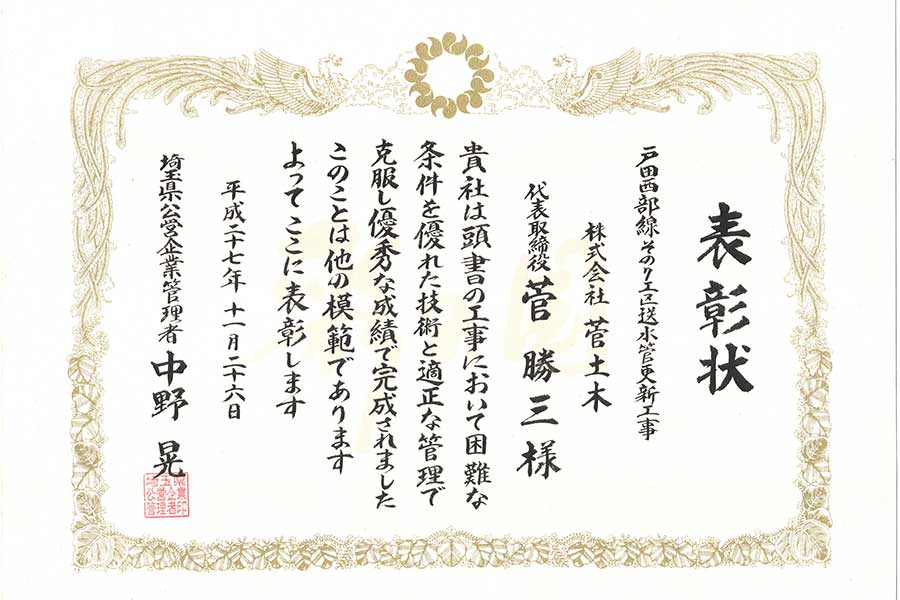 表彰状
戸田西部線その1工区送水管更新工事
株式会社 菅土木
代表取締役 菅 勝三 様
貴社は頭書の工事において困難な
条件を優れた技術と適正な管理で
克服し優秀な成績で完成されました
このことは他の模範であります
よってここに表彰します
平成二十七年 十一月二十六日
埼玉県公営企業管理者 中野 晃